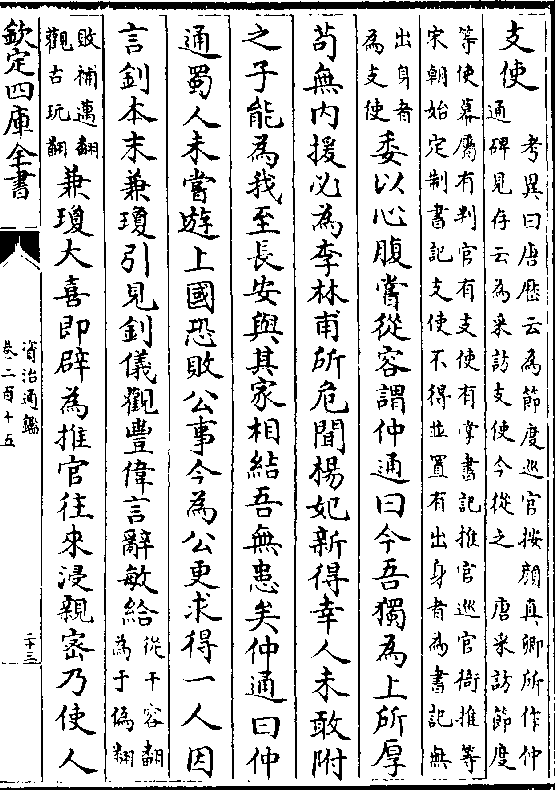 支使考異曰唐歷云為節度巡官按顔真卿所作仲
通碑見存云為采訪支使今從之 唐采訪節度
等使幕屬有判官有支使有掌書記推官巡官衙推等
宋朝始定制書記支使不得並置有出身者為書記無
出身者
為支使
委以心腹嘗從容謂仲通曰今吾獨為上所厚
苟無内援必為李林甫所危聞楊妃新得幸人未敢附
之子能為我至長安與其家相結吾無患矣仲通曰仲
通蜀人未嘗遊上國恐敗公事今為公更求得一人因
言釗本末兼瓊引見釗儀觀豐偉言辭敏給
從干容翻
為于偽翻
敗補邁翻
觀古玩翻
兼瓊大喜即辟為推官往來浸親密乃使人
欽定四庫全書
資治通鑑
卷二百十五
二十三